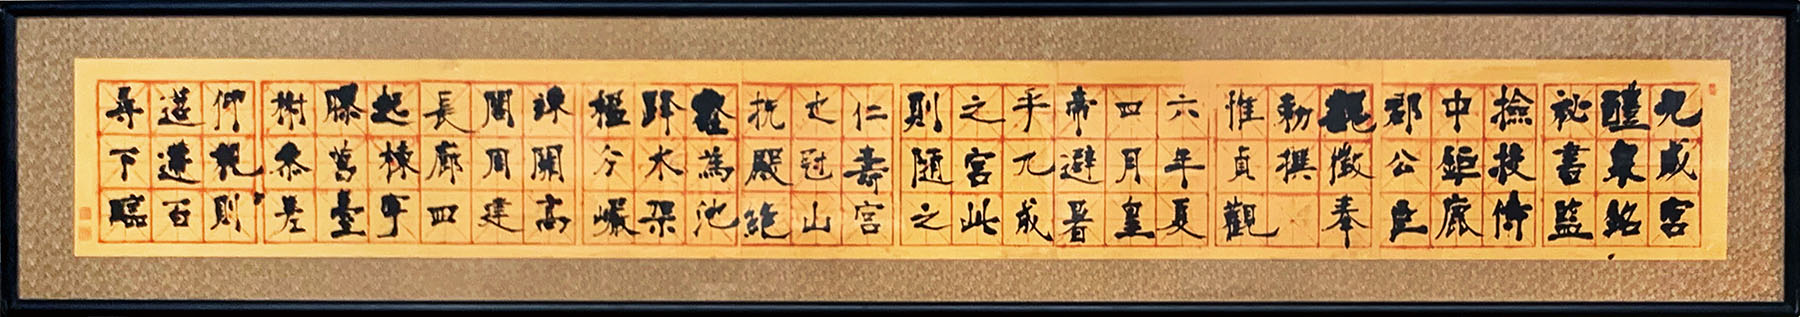 九成宮
醴泉銘
祕書監
檢校侍
中鉅鹿
郡公臣
魏徵奉
勅撰
惟貞觀
六年夏
四月皇
帝避暑
乎九成
之宮此
則隨之
仁壽宮
也冠山
抗殿絕
壑為池
跨水架
楹分巖
竦闕高
閣周建
長廊四
起棟宇
膠葛臺
榭參差
仰視則
迢遰百
尋下臨